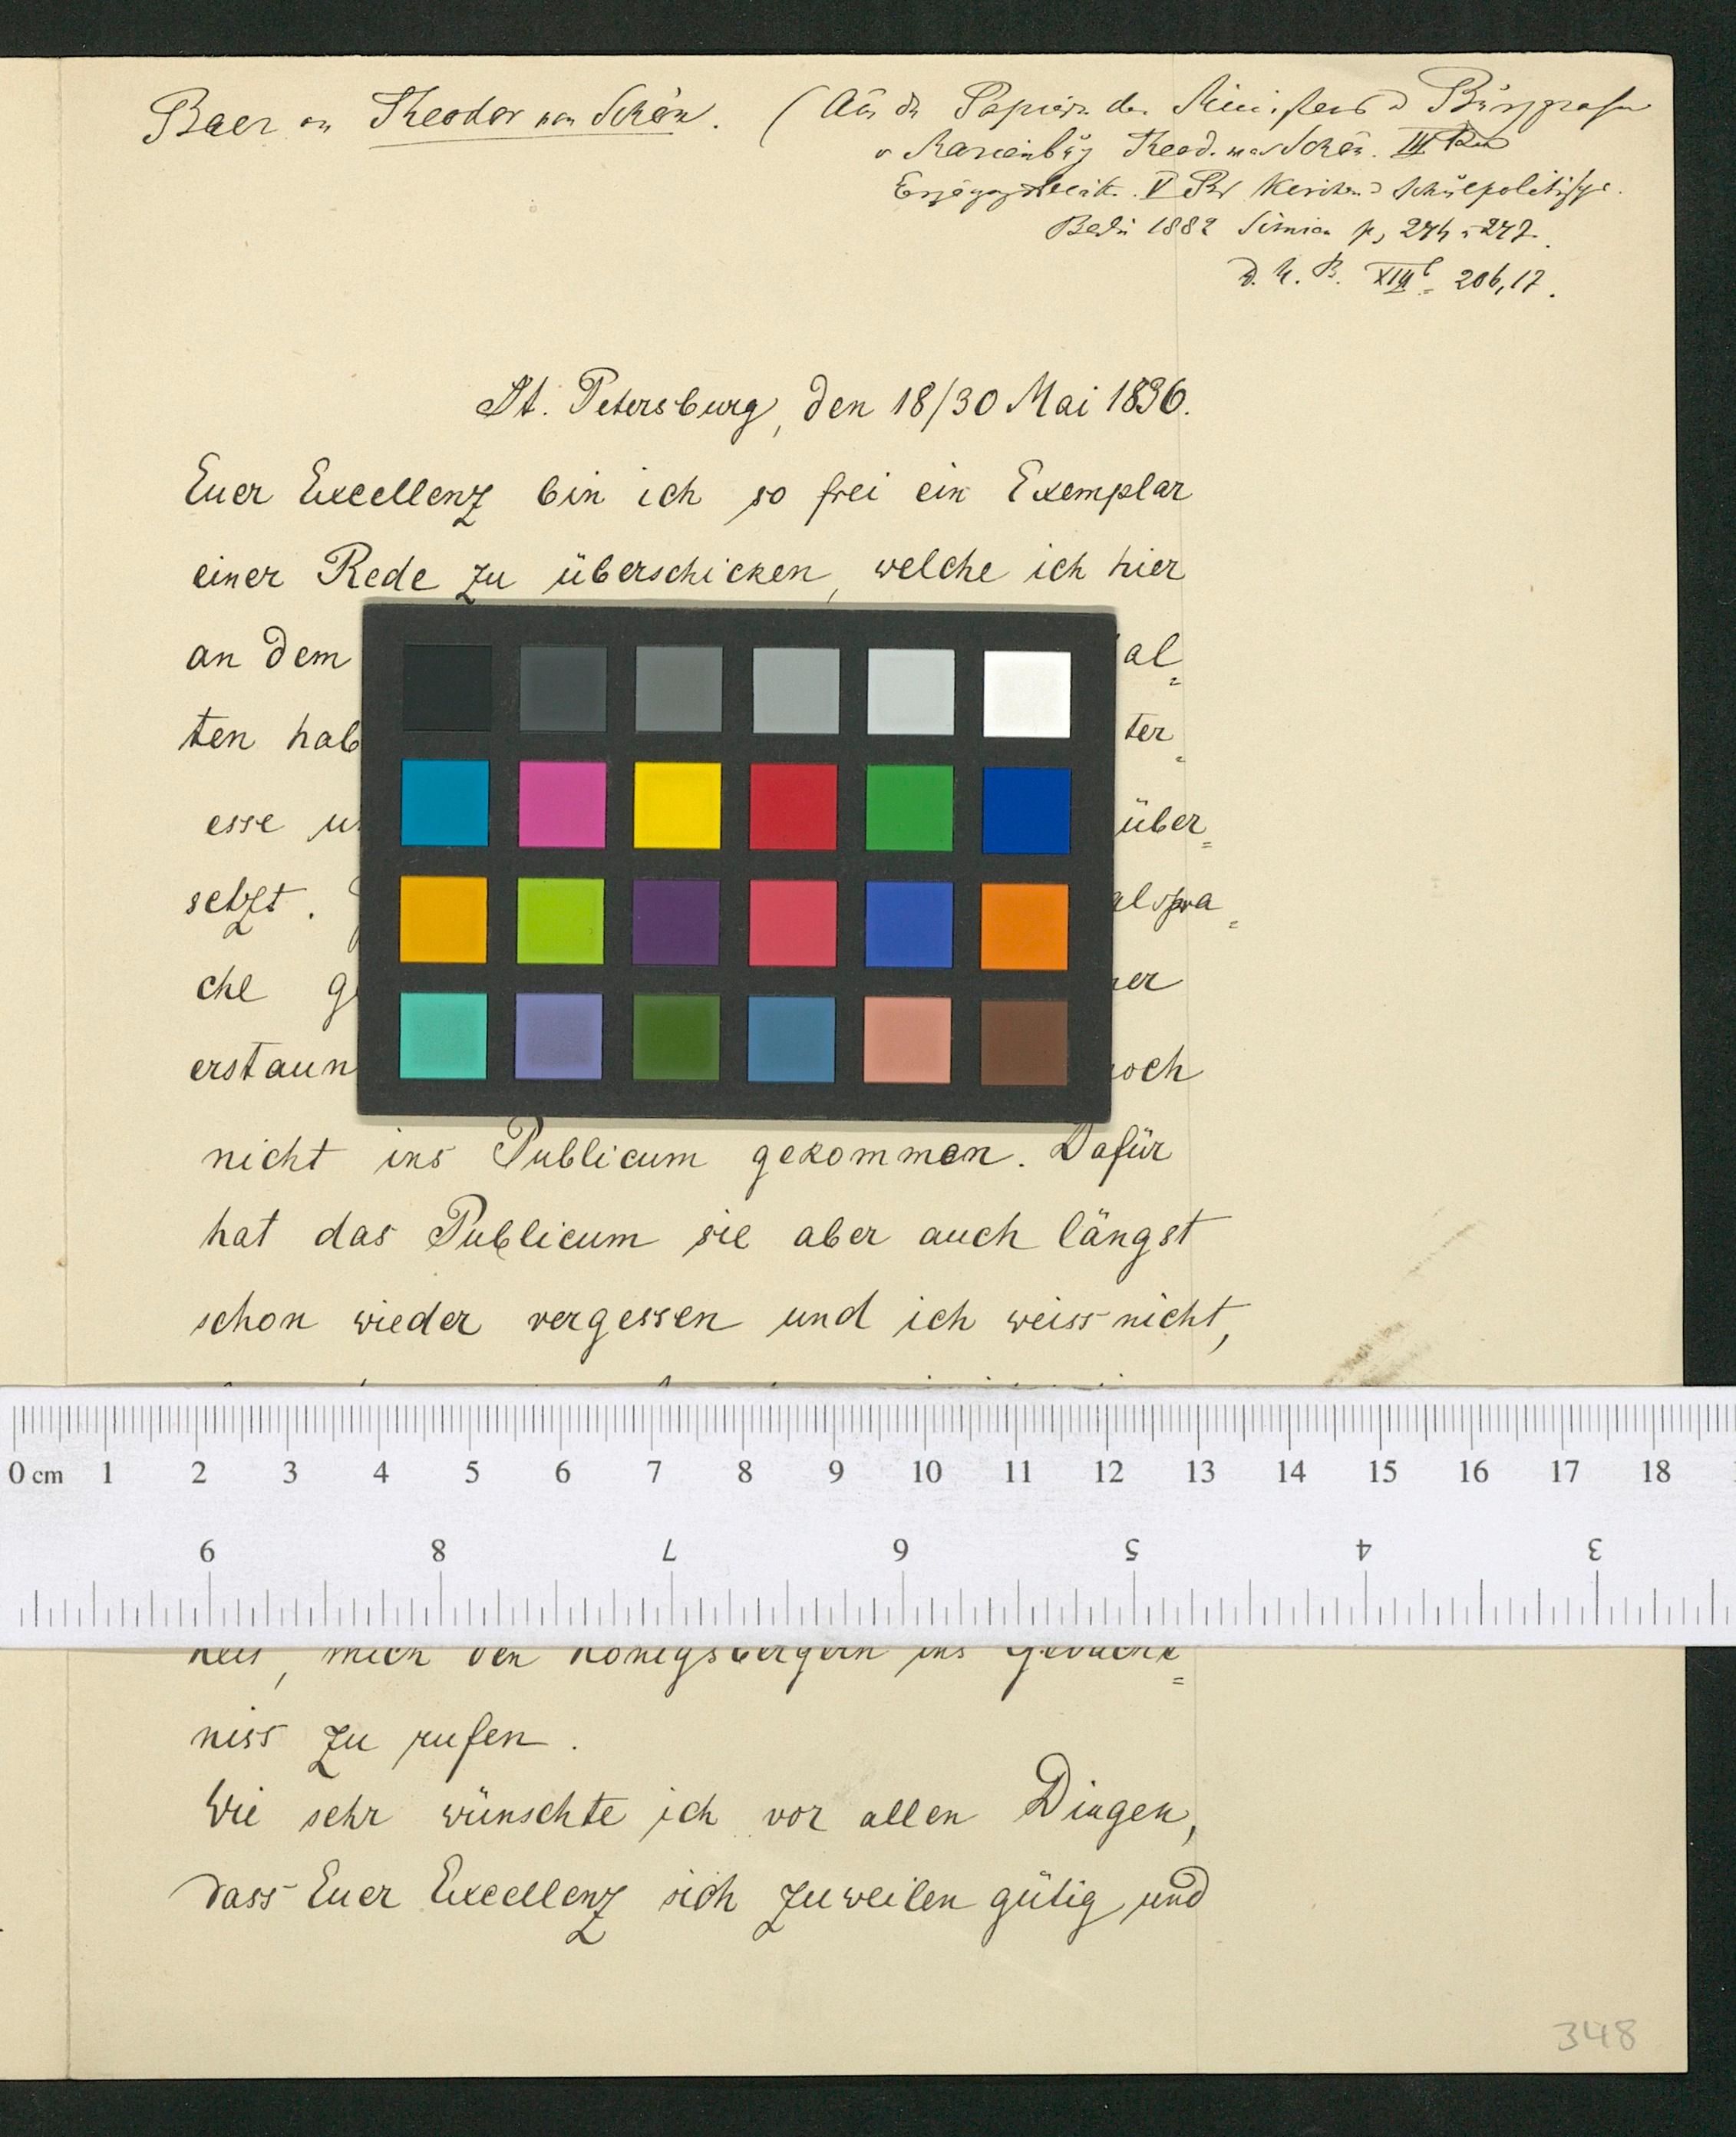 Baer an Theodor von Schön. (Aus den Papieren des Ministers u Burggrafen
v Marienburg Theod. von Schön. III
V Bd Kirchen u Schulpolitisches.
Berlin 1882 Simion p, 274 - 277.
D. H. B. XIII 206,17.
St. Petersburg, den 18/30 Mai 1836.
Euer Excellenz bin ich so frei ein Exemplar
einer Rede zu überschicken, welche ich hier
an dem al=
ten hab ter=
esse über=
setzt. alspra=
che
erstaun och
nicht ins Publicum gekommen. Dafür
hat das Publicum sie aber auch längst
schon wieder vergessen und ich weiss nicht,
0 cm 1 2 3 4 5 6 7 8 9 10 11 12 13 14 15 16 17 18
9 8 7 6 5 4 3
heit, mich den Königsbergern ins Gedächt=
niss zu rufen.
Wie sehr wünschte ich vor allen Dingen,
dass Euer Excellenz sich zuweilen gütig und
348